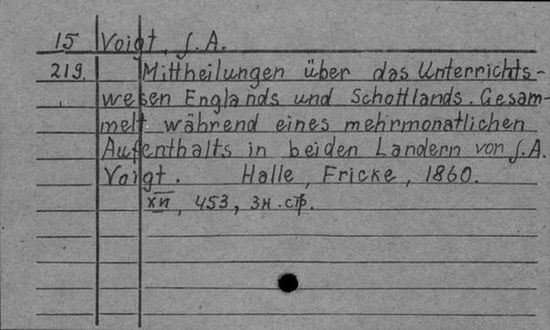 15 Voigt, J. A.
219. Mittheilungen über das Unterrichts-
wesen Englands und Schottlands. Gesam-
melt während eines mehrmonatlichen
Aufenthalts in beiden Landern von J. A.
Voigt. Halle, Fricke, 1860.
XII, 453, 3н. стр.